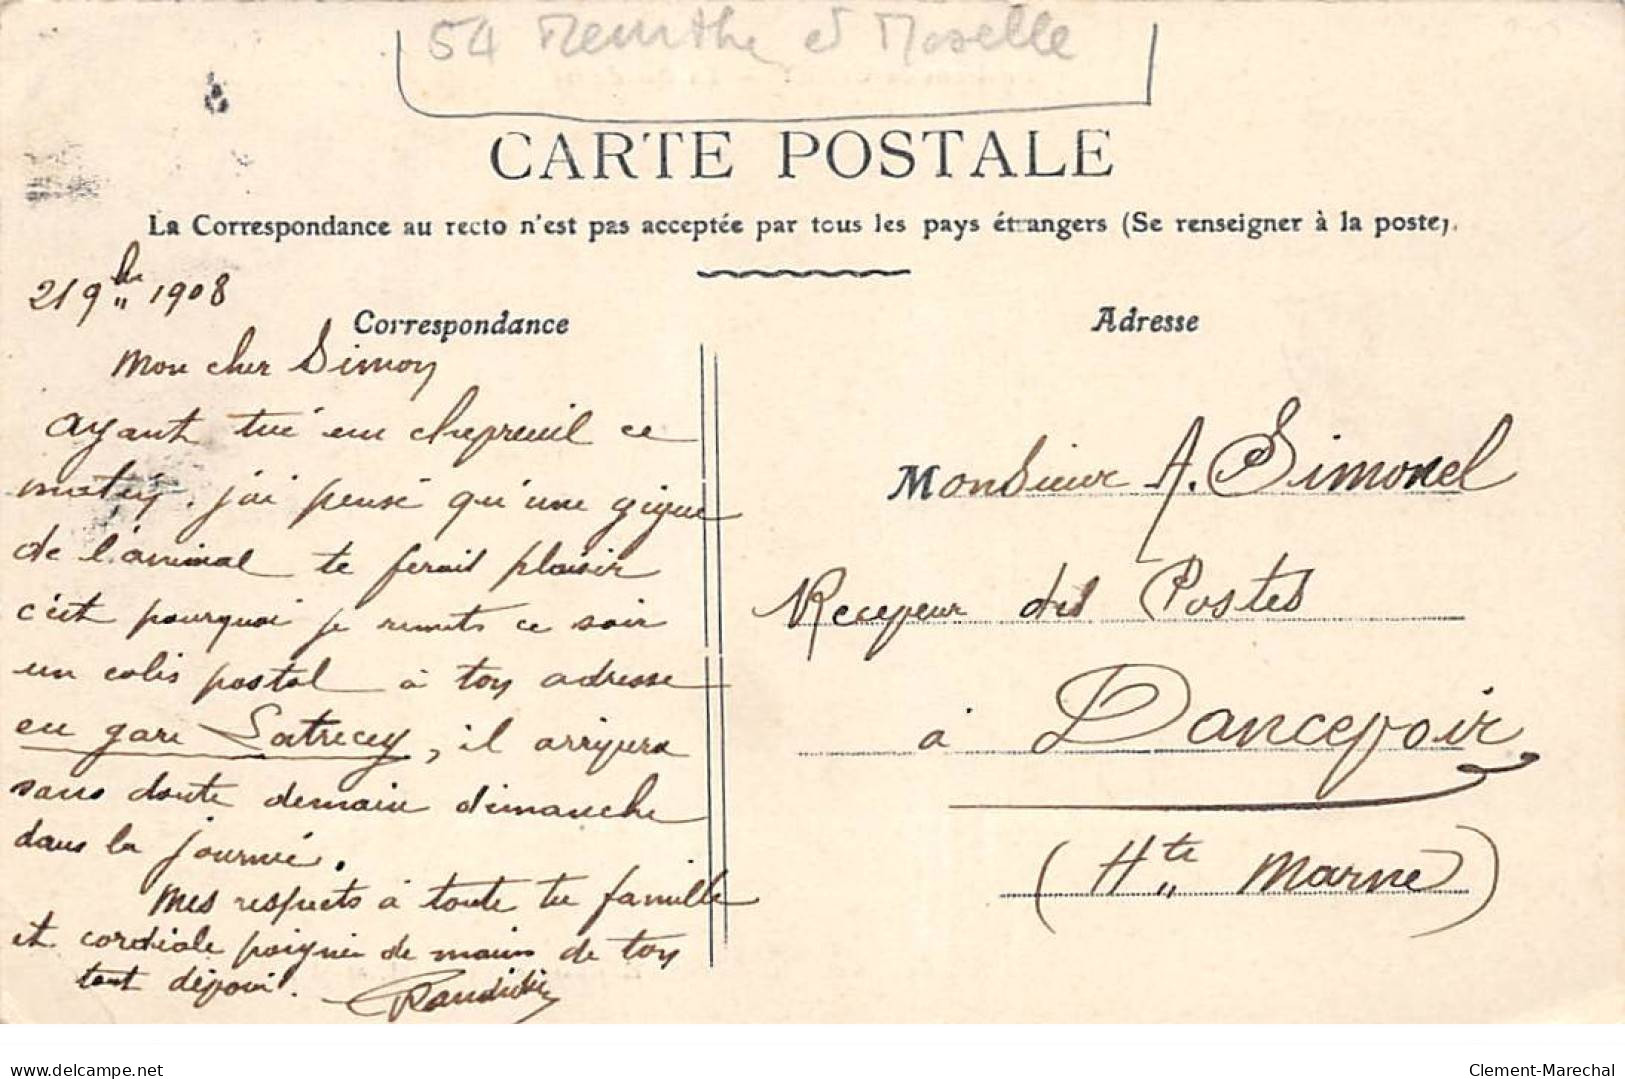 54 Meurthe et Moselle
CARTE POSTALE
La Correspondance au recto n'est pas acceptée par tous les pays étrangers (Se renseigner à la poste).
21 9bre 1908
Correspondance
Mon cher Simon
ayant tué un chevreuil ce
matin, j'ai pensé qu'une gigue
de l'animal te ferait plaisir
c'est pourquoi je remets ce soir
un colis postal à ton adresse
en gare Latrecey, il arrivera
sans doute demain dimanche
dans la journée.
Mes respects à toute ta famille
et cordiale poignée de mains de ton
tout dévoué.
Adresse
Monsieur A. Simonel
Receveur des Postes
à Dancevoir
(Hte Marne)
delcampe.net
Clement-Marechal